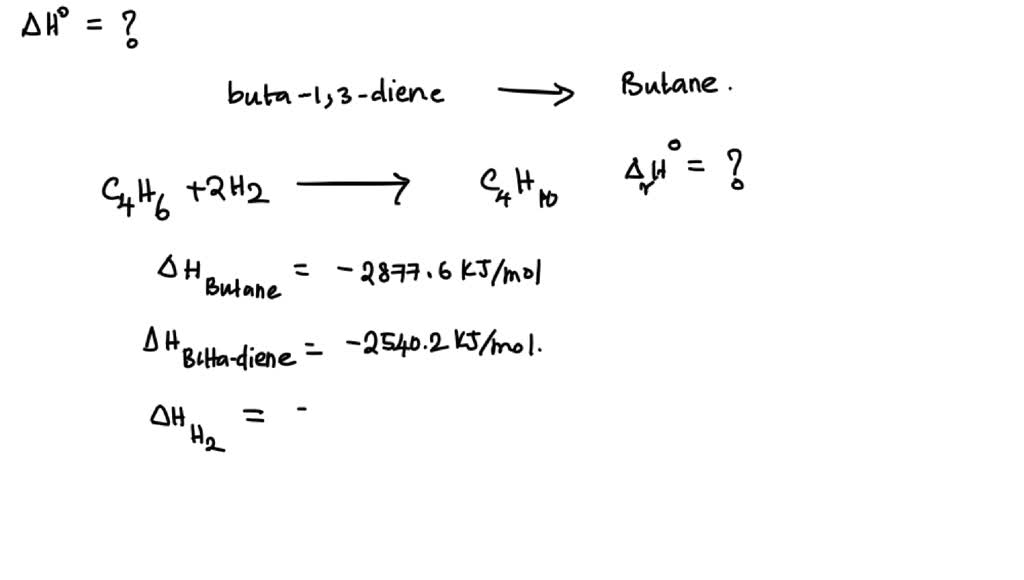 ΔH° = ?
buta-1,3-diene ⟶ Butane.
C₄H₆ + 2H₂ ⟶ C₄H₁₀ ΔᵣH° = ?
ΔH Butane = -2877.6 KJ/mol
ΔH Buta-diene = -2540.2 KJ/mol.
ΔH H₂ = -